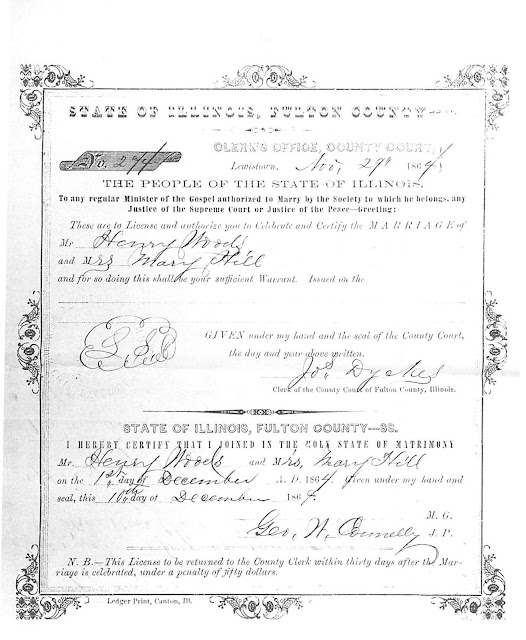 STATE OF ILLINOIS, FULTON COUNTY—SS.
CLERK'S OFFICE, COUNTY COURT,
No. 274
Lewistown, Nov, 29" 1864
THE PEOPLE OF THE STATE OF ILLINOIS,
To any regular Minister of the Gospel authorized to Marry by the Society to which he belongs, any
Justice of the Supreme Court or Justice of the Peace—Greeting:
These are to License and authorize you to Celebrate and Certify the MARRIAGE of
Mr Henry Woods
and Mrs Mary Hill
and for so doing this shall be your sufficient Warrant. Issued on the
GIVEN under my hand and the seal of the County Court,
the day and year above written.
Jos. Dyckes
Clerk of the County Court of Fulton County, Illinois.
STATE OF ILLINOIS, FULTON COUNTY—SS.
I HEREBY CERTIFY THAT I JOINED IN THE HOLY STATE OF MATRIMONY
Mr. Henry Woods and Mrs, Mary Hill
on the 1st day of December A. D. 1864 Given under my hand and
seal, this 10th day of December 1864.
M. G.
Geo, W, Connelly J. P.
N. B.—This License to be returned to the County Clerk within thirty days after the Mar-
riage is celebrated, under a penalty of fifty dollars.
Ledger Print, Canton, Ill.